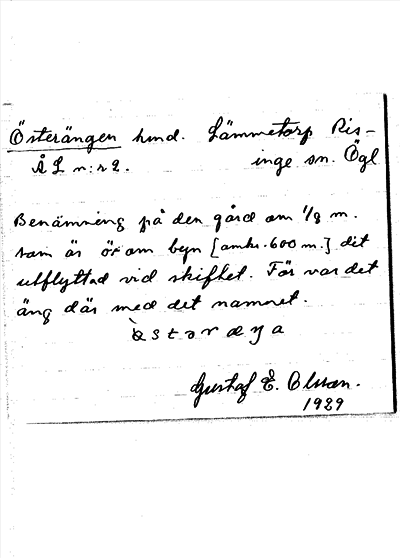 Österängen hmd. Lämmetorp Ris-
ÅL n:r 2. inge sn. Ögl
Benämning på den gård om 1/8 m.
som är öx om byn [omkr. 600 m.] dit
utflyttad vid skiftet. För var det
äng där med det namnet.
Gustaf E. Olsson.
1929